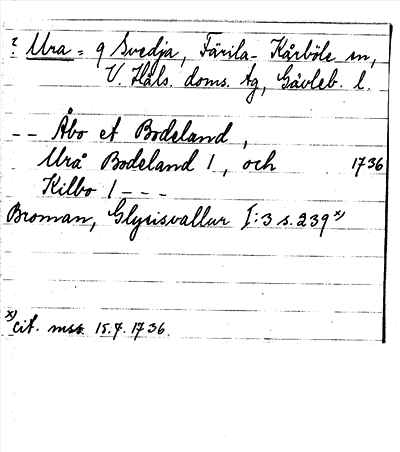 ? Ura = g Svedja, Färila-Kårböle sn,
V. Häls. doms. tg, Gävleb. l.
-- Åbo et Bodeland,
Urå Bodeland 1, och 1736
Kilbo 1 ---
Broman, Glysisvallur I:3 s. 239 x)
x) cit. mss. 15.7.1736.